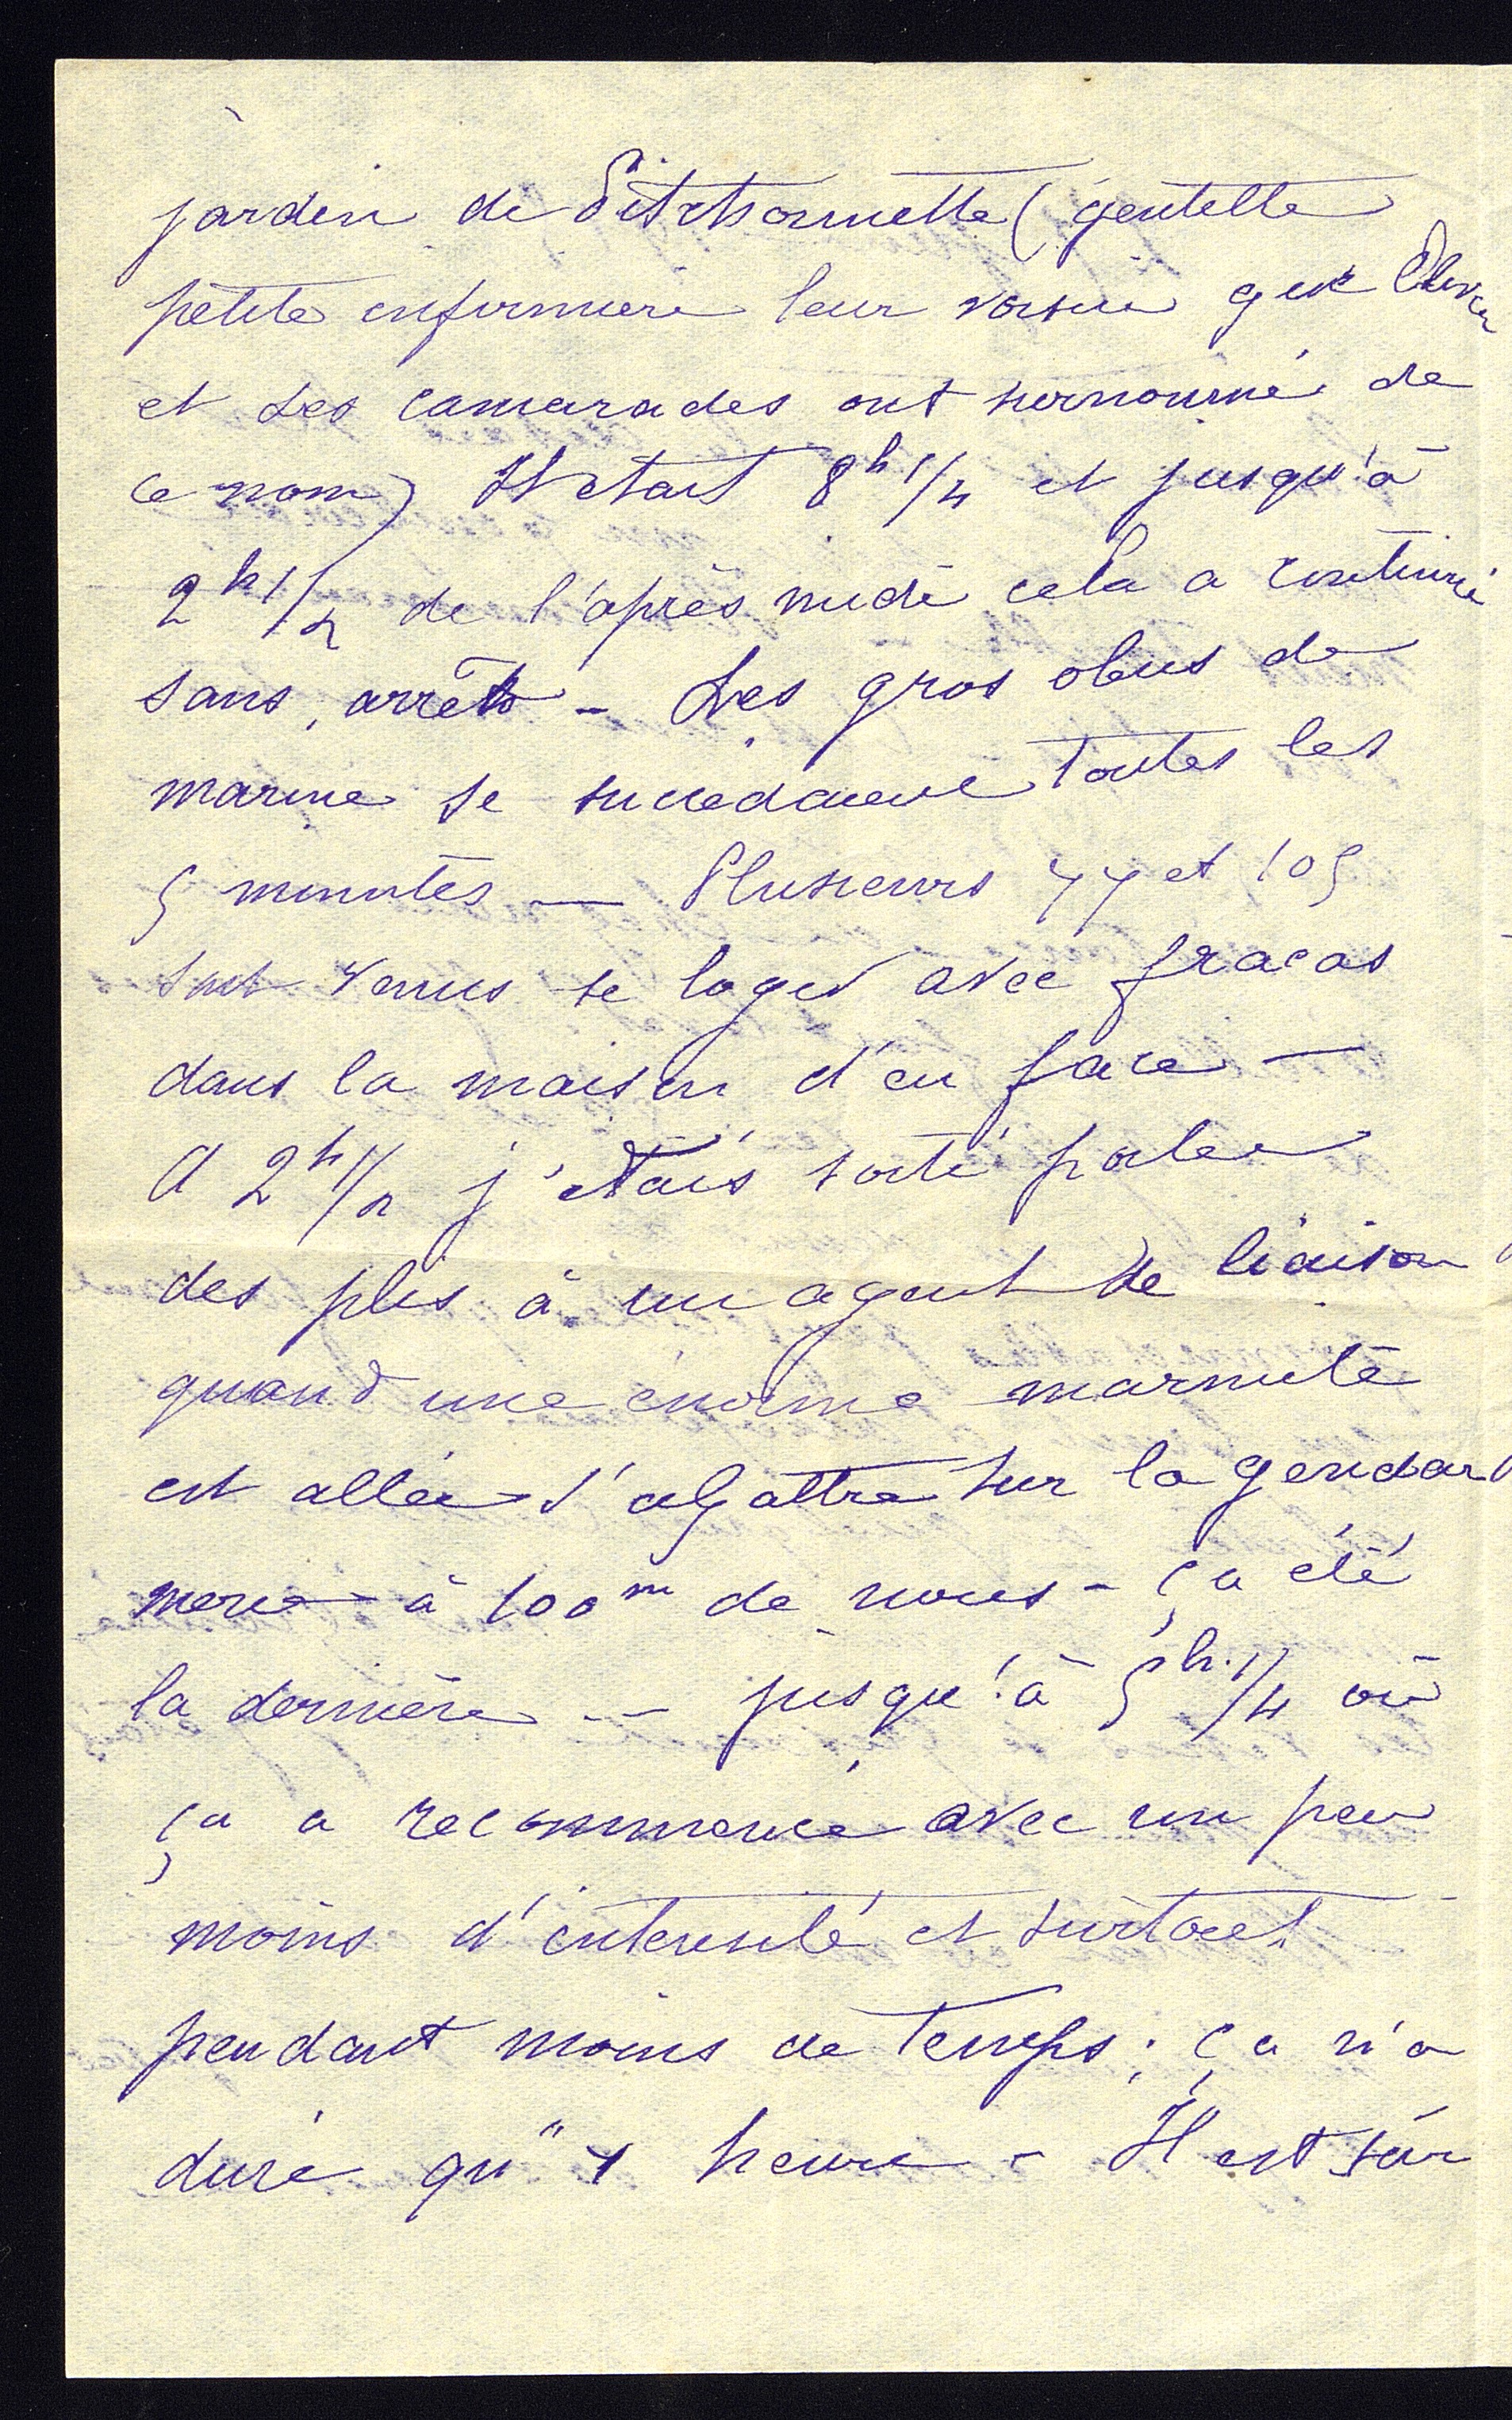 jardin de Pitchounette (gentille
petite infirmière leur voisine que
et ses camarades ont surnommé de
ce nom) Il était 8h 1/4 et jusqu'à
2h 1/2 de l'après midi cela a continué
sans arrêt - Les gros obus de
marine se succedaient toutes les
5 minutes — Plusieurs 77 et 105
sont venus se loger avec fracas
dans la maison d'en face —
A 2h 1/2 j'étais sorti porter
des plis à un agent de liaison
quand une énorme marmite
est allée s'abattre sur la gendar
merie à 100m de nous - ça été
la dernière -- jusqu'à 5h. 1/4 où
ça a recommencé avec un peu
moins d'intensité et surtout
pendant moins de temps ; ça n'a
duré qu' 1 heure - Il est sûr